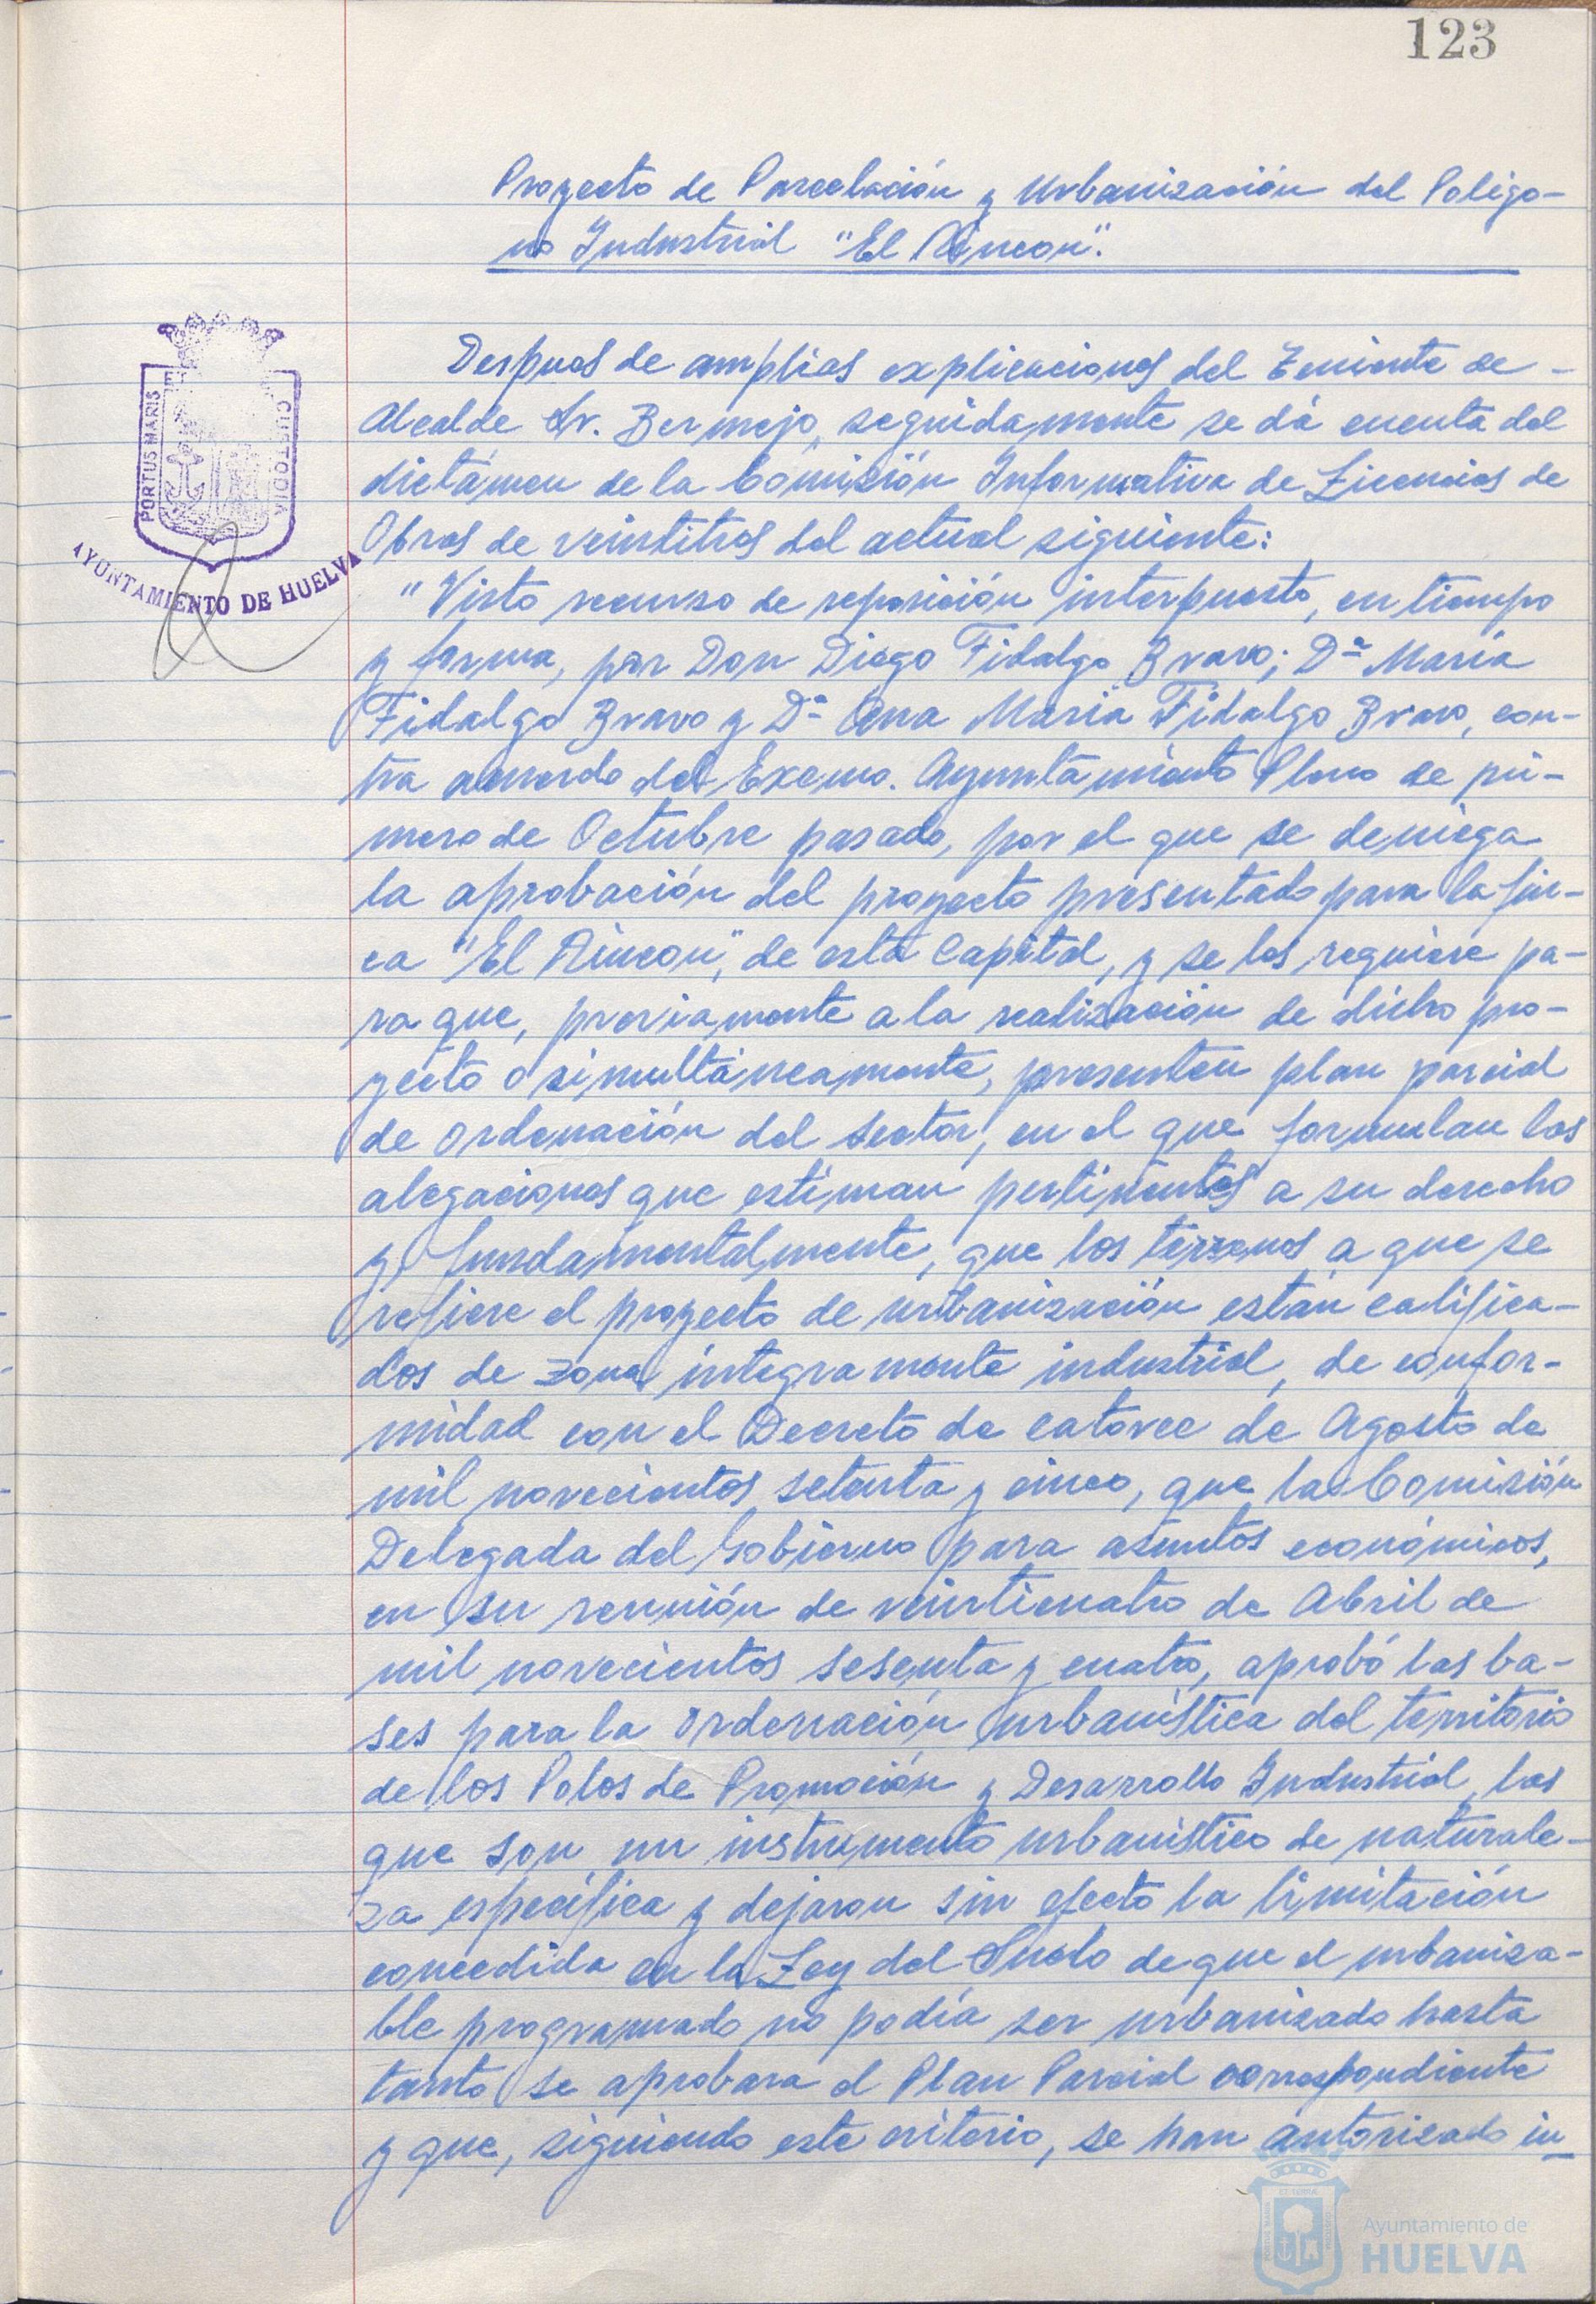 123
Proyecto de Parcelación y Urbanización del Polígo-
no Industrial "El Rincon".
Despues de amplias explicaciones del Teniente de -
Alcalde Sr. Bermejo, seguidamente se dá cuenta del
dictámen de la Comisión Informativa de Licencias de
Obras de veintitres del actual siguiente:
"Visto recurso de reposición interpuesto, en tiempo
y forma, por Don Diego Fidalgo Bravo; Dª María
Fidalgo Bravo y Dª Ana María Fidalgo Bravo, con-
tra acuerdo del Excmo. Ayuntamiento Pleno de pri-
mero de Octubre pasado, por el que se deniega
la aprobación del proyecto presentado para la fin-
ca "El Rincon", de esta Capital, y se les requiere pa-
ra que, previamente a la realización de dicho pro-
yecto o simultáneamente, presenten plan parcial
de ordenación del sector, en el que formulan las
alegaciones que estiman pertinentes a su derecho
y fundamentalmente, que los terrenos a que se
refiere el proyecto de urbanización están califica-
dos de zona íntegramente industrial, de confor-
midad con el Decreto de catorce de Agosto de
mil novecientos setenta y cinco, que la Comisión
Delegada del Gobierno para asuntos económicos,
en su reunión de veinticuatro de Abril de
mil novecientos sesenta y cuatro, aprobó las ba-
ses para la ordenación urbanística del territorio
de los Polos de Promoción y Desarrollo Industrial, las
que son un instrumento urbanístico de naturale-
za específica y dejaron sin efecto la limitación
concedida en la Ley del Suelo de que el urbaniza-
ble programado no podía ser urbanizado hasta
tanto se aprobara el Plan Parcial correspondiente
y que, siguiendo este criterio, se han autorizado in-
PORTUS MARIS
CUSTODIA
AYUNTAMIENTO DE HUELVA
Ayuntamiento de
HUELVA